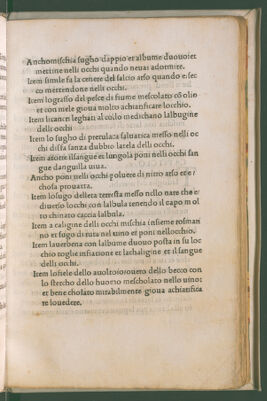 Anchomischia sugho dappio et albume duouo: et
mettine nelli occhi quando neuai adormire.
Item simile fa la cenere del salcio arso quando e sec
co mettendone nelli occhi.
Item lograsso del pesce di fiume mescolato cõ olio
et con mele gioua molto achiarificare locchio.
Item licancri leghati al collo medichano lalbugine
delli occhi
Item lo sugho di pretulaca saluatica messo nelli oc
chi disfa sanza dubbio la tela delli occhi.
Item ancore il sangue et lungola poni nelli occhi san
gue danguilla uiua.
Ancho poni nelli occhi poluere di nitro arso et e
chosa prouatta.
Item losugo dellera terresta messo nello nare the e
diuerso locchi con lalbula tenendo il capo mol
to chinato caccia lalbula.
Item a caligine delli occhi mischia insieme rosmari
no et sugo di ruta nel uino et poni nellocchio.
Item lauerbena con lalbume duouo posta in su loc
chio toglie infiatione et lachaligine et il sangue
delli occhi.
Item lofiele dello auoltoio: ouero dello becco con
lo stercho dello huomo mescholato nello uino:
et bene cholato mirabilmente gioua achiarifica
re louedere.